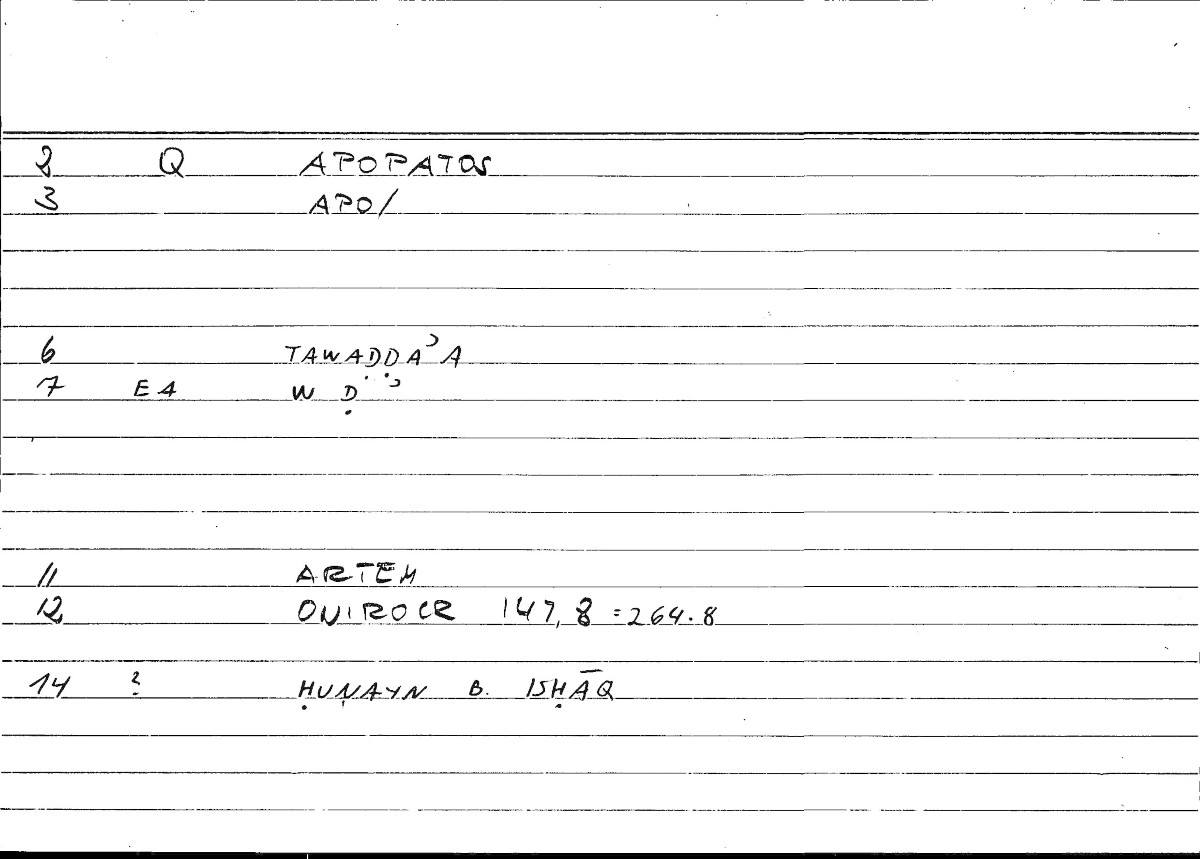 2 Q APOPATOS
3 APO/
6 TAWAḌḌAʾA
7 E4 W Ḍ ʾ
11 ARTEM
12 ONIROCR 147,8 =264.8
14 ? ḤUNAYN B. ISḤĀQ